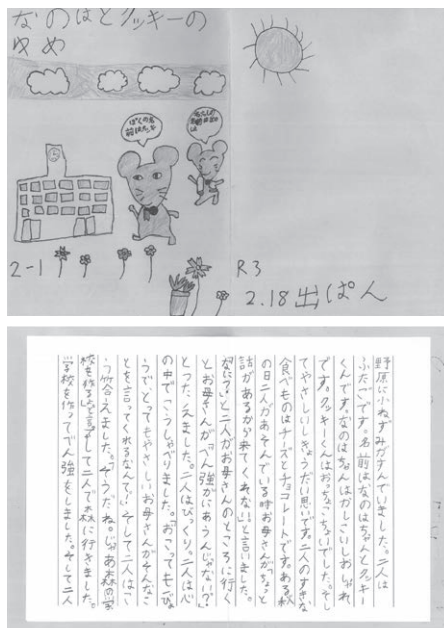 なのはとクッキーの
ゆめ
ぼくの名
前はクッキー
2-1
R3
2.18出ぱん
野原に小ねずみがすんでいました。二人は
ふたごです。名前はなのはちゃんとクッキー
くんです。なのはちゃんはかしこいしおしゃれ
です。クッキーくんはおっちょこちょいでした。そし
てやさしいしきょうだい思いです。二人のすきな
食べものはチーズとチョコレートです。ある秋
の日二人があそんでいる時お母さんが「ちょっと
話があるから来てくれない。」と言いました。
「なに?」と二人がお母さんのところに行く
とお母さんが「べん強がにあうんじゃない?」
とつたえました。二人はびっくり。二人は心
の中でこうしゃべりました。「おこってもびょ
うでとってもやさしいお母さんがそんなこ
とを言ってくれるなんて!」そして二人はこ
う答えました。「そうだね。じゃあ森の学
校を作る。」と言って二人で森に行きました。
学校を作ってべん強をしました。そして二人